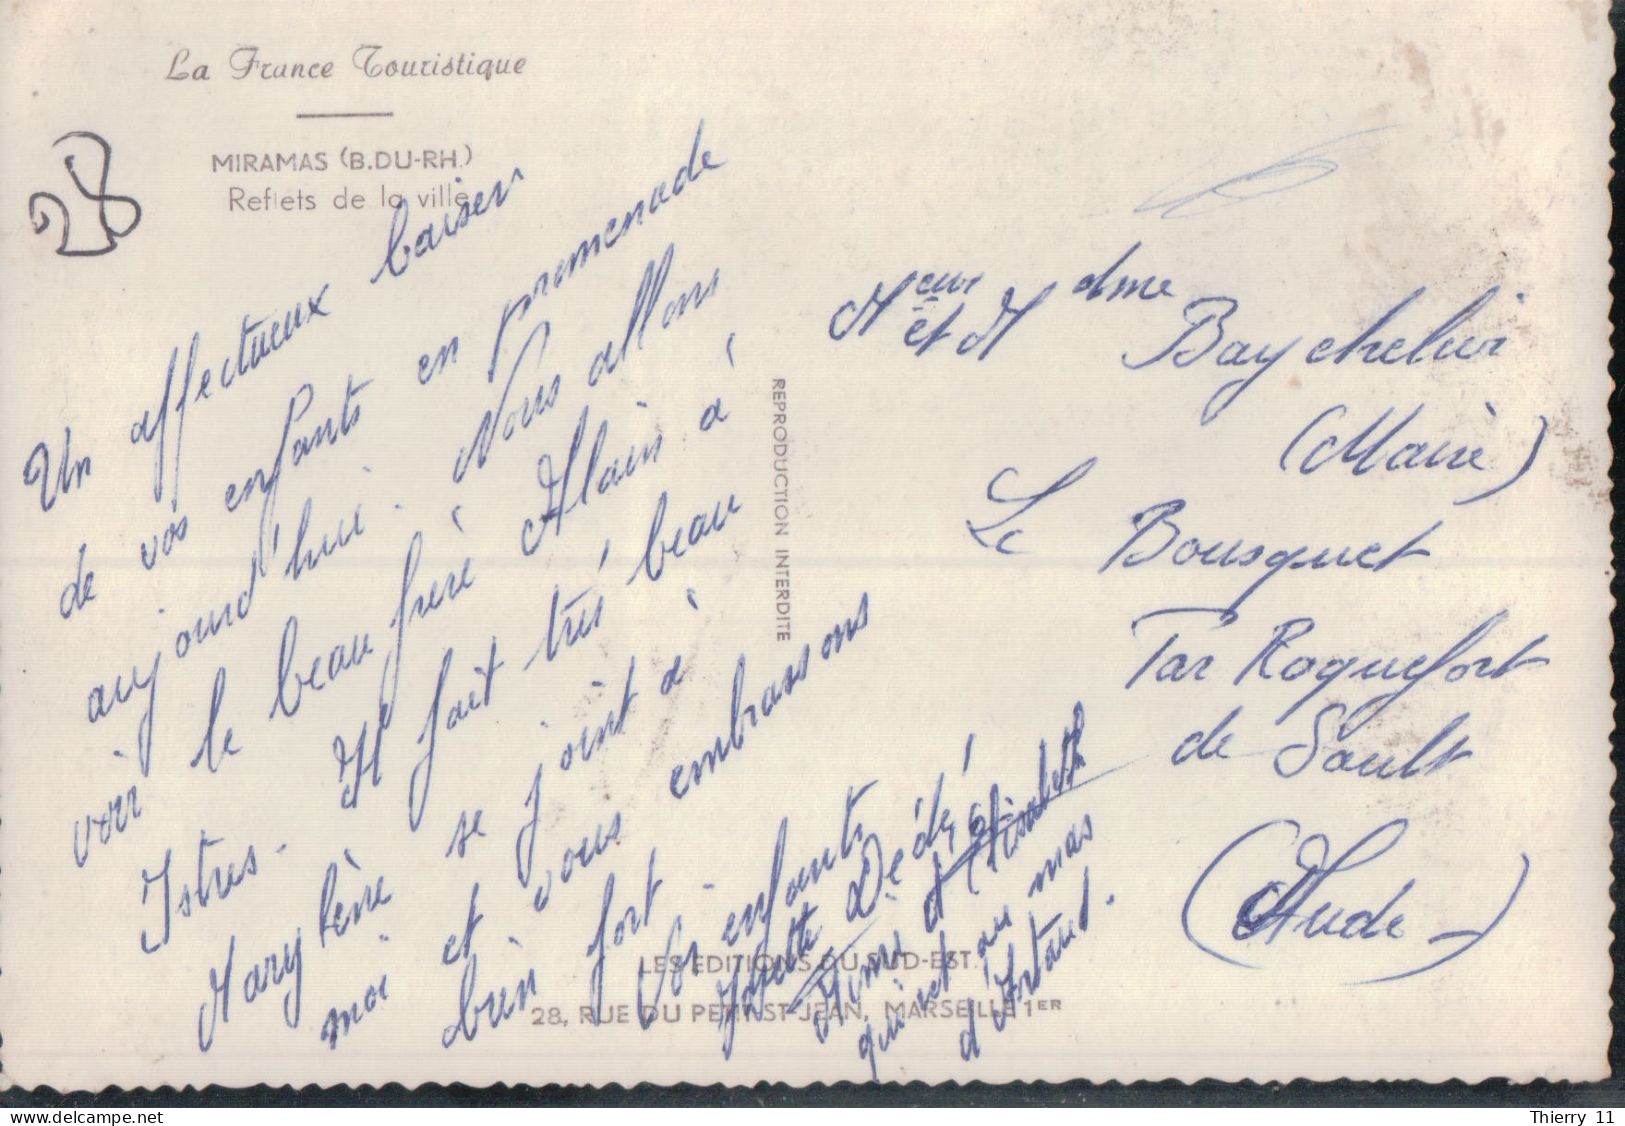 La France Touristique
MIRAMAS (B.DU-RH.)
Reflets de la ville
28
Un affectueux baiser
de vos enfants en promenade
aujourd'hui. Nous allons
voir le beau frère Alain à
Istres. Il fait très beau
Marylène se joint à
moi et vous embrassons
bien fort.
Vos enfants
Dédé
Mimi
qui est au mas
d'Artaud.
REPRODUCTION INTERDITE
LES EDITIONS DU SUD-EST.
28, RUE DU PETIT-ST-JEAN, MARSEILLE 1ER
Meur et Mdme
Baychelier
(Mairie)
Le Bousquet
Par Roquefort
de Sault
(Aude)
Thierry 11